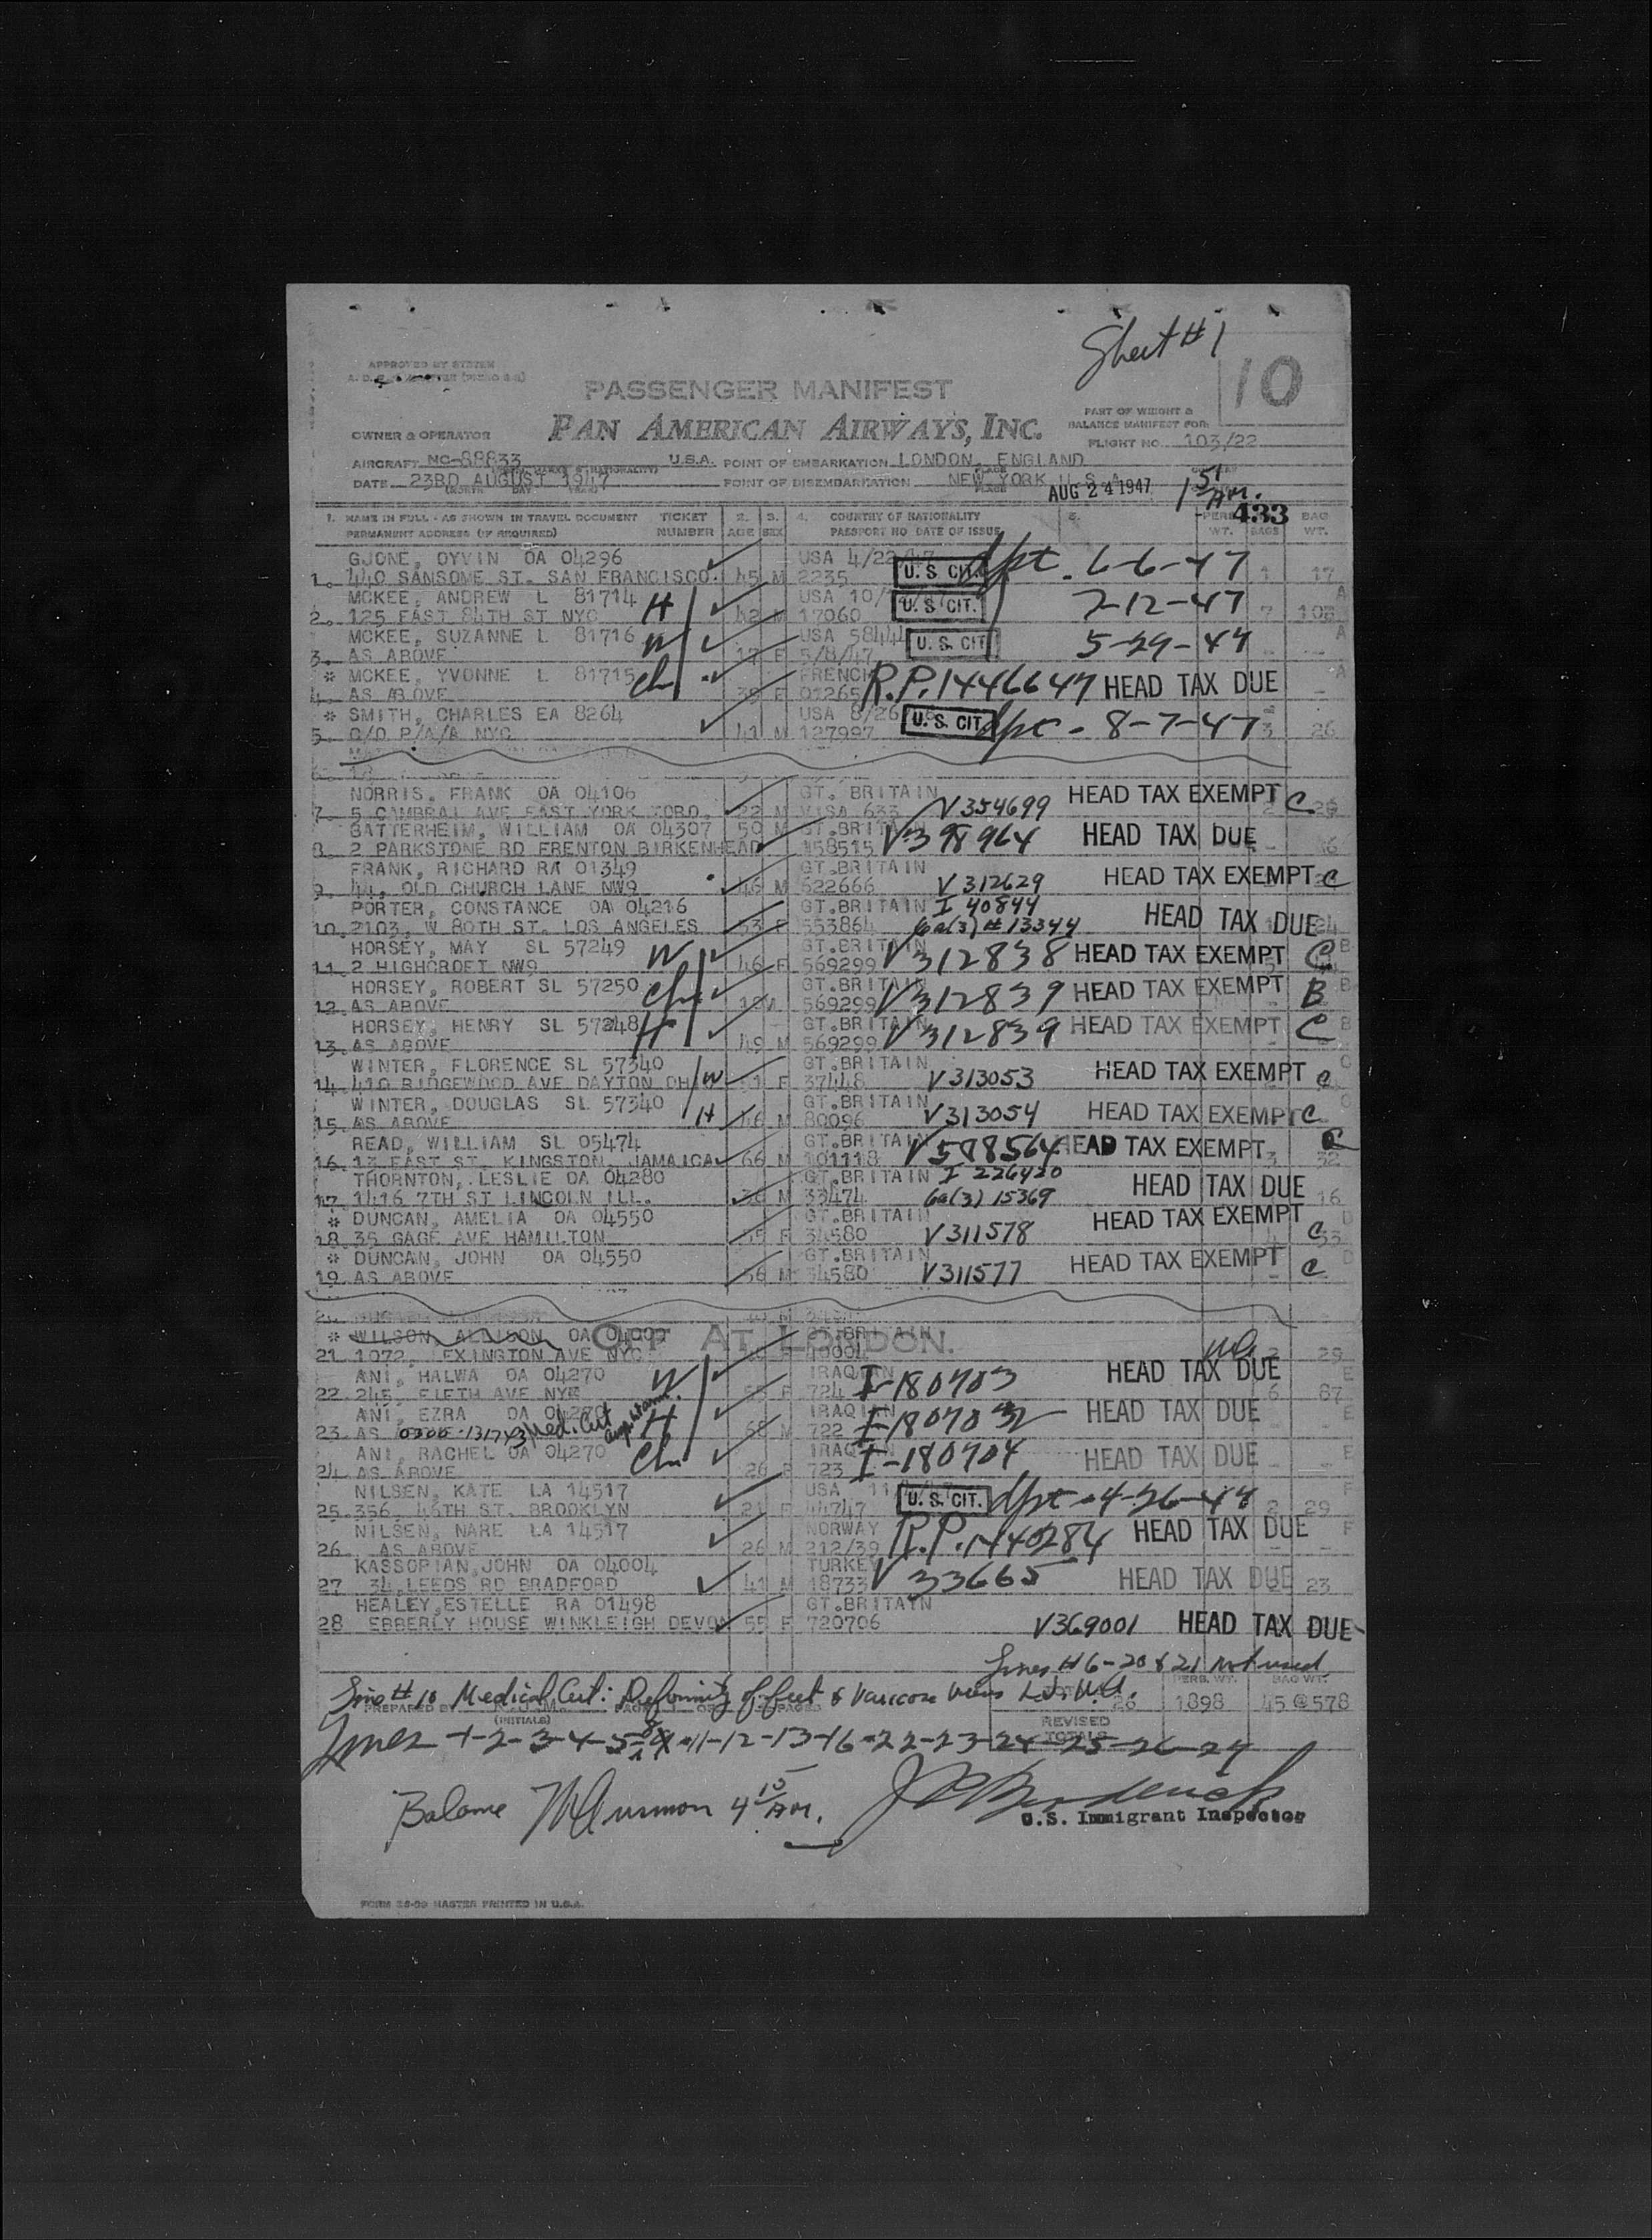 Sheet #1
10
APPROVED BY SYSTEM
PASSENGER MANIFEST
PAN AMERICAN AIRWAYS, INC.
PART OF WEIGHT &
BALANCE MANIFEST FOR:
OWNER & OPERATOR
FLIGHT NO. 103/22
AIRCRAFT NC-88833 U.S.A. POINT OF EMBARKATION LONDON, ENGLAND
DATE 23RD AUGUST 1947 POINT OF DISEMBARKATION NEW YORK U.S.A.
AUG 24 1947 1 51 AM.
433
1. NAME IN FULL - AS SHOWN IN TRAVEL DOCUMENT TICKET 2. 3. 4. COUNTRY OF NATIONALITY 5. BAG
PERMANENT ADDRESS (IF REQUIRED) NUMBER AGE SEX PASSPORT NO DATE OF ISSUE WT. BAGS WT.
GJONE, OYVIN OA 04296 USA 4/22/47
1. 440 SANSOME ST. SAN FRANCISCO. 45 M 2235 U.S. CIT. dpt. 6-6-47 1 17
MCKEE, ANDREW L 81714 H USA 10/ A
2. 125 EAST 84TH ST NYC 42 M 17060 U.S. CIT. 7-12-47 7 103
MCKEE, SUZANNE L 81716 W USA 58444 A
3. AS ABOVE 17 F 5/8/47 U.S. CIT 5-29-47
* MCKEE, YVONNE L 81715 Ch FRENCH A
4. AS ABOVE 39 F 01265 R.P. 1446647 HEAD TAX DUE
* SMITH, CHARLES EA 8264 USA 8/26
5. C/O P/A/A NYC 41 M 127997 U.S. CIT. dpt - 8-7-47 3 26
NORRIS, FRANK OA 04106 GT. BRITAIN
7. 5 CAMBRAI AVE EAST YORK TORO. 22 M VISA 633 V354699 HEAD TAX EXEMPT C
BATTERHEIM, WILLIAM OA 04307 50 M GT.BRITAIN
8. 2 PARKSTONE RD PRENTON BIRKENHEAD 158515 V398964 HEAD TAX DUE
FRANK, RICHARD RA 01349 GT.BRITAIN
9. 44, OLD CHURCH LANE NW9 46 M 622666 V312629 HEAD TAX EXEMPT C
PORTER, CONSTANCE OA 04216 GT.BRITAIN I 40844
10. 2103, W 80TH ST. LOS ANGELES 53 F 553864 6a(3) # 13344 HEAD TAX DUE 24
HORSEY, MAY SL 57249 W GT.BRITAIN B
11. 2 HIGHCROFT NW9 46 F 569299 V312838 HEAD TAX EXEMPT C
HORSEY, ROBERT SL 57250 Ch GT.BRITAIN B
12. AS ABOVE 12 M 569299 V312839 HEAD TAX EXEMPT B
HORSEY, HENRY SL 57248 H GT.BRITAIN B
13. AS ABOVE 49 M 569299 V312839 HEAD TAX EXEMPT C
WINTER, FLORENCE SL 57340 GT.BRITAIN C
14. 410 RIDGEWOOD AVE DAYTON OH W 51 F 37448 V313053 HEAD TAX EXEMPT C
WINTER, DOUGLAS SL 57340 GT.BRITAIN C
15. AS ABOVE H 46 M 80096 V313054 HEAD TAX EXEMPT C
READ, WILLIAM SL 05474 GT.BRITAIN
16. 17 EAST ST. KINGSTON, JAMAICA 66 M 101118 V508564 HEAD TAX EXEMPT C 3 32
THORNTON, LESLIE OA 04280 GT.BRITAIN I 226420
17. 1416 7TH ST LINCOLN ILL. 36 M 33474 6a(3) 15369 HEAD TAX DUE 16
* DUNCAN, AMELIA OA 04550 GT.BRITAIN D
18. 35 GAGE AVE HAMILTON 55 F 34580 V311578 HEAD TAX EXEMPT C 33
* DUNCAN, JOHN OA 04550 GT.BRITAIN D
19. AS ABOVE 56 M 34580 V311577 HEAD TAX EXEMPT C
* WILSON, ALLISON OA 04000 GT.BRITAIN
OFF AT LONDON.
21 1072, LEXINGTON AVE NYC F 49004 29
ANI, HALWA OA 04270 W IRAQIAN E
22. 245, FIFTH AVE NYC 55 F 724 I-180703 HEAD TAX DUE 6 87
ANI, EZRA OA 04270 H IRAQIAN E
23. AS 0300-131743 Med. Cert 68 M 722 HEAD TAX DUE
ANI, RACHEL OA 04270 Ch IRAQIAN E
24. AS ABOVE 26 F 723 I-180704 HEAD TAX DUE
NILSEN, KATE LA 14517 USA F
25. 356, 46TH ST. BROOKLYN 21 F 44747 U.S. CIT. dpt - 4-26-47 2 29
NILSEN, NARE LA 14517 NORWAY F
26. AS ABOVE 26 M 212/39 R.P. 1440284 HEAD TAX DUE
KASSOPIAN, JOHN OA 04004 TURKEY
27 34 LEEDS RD BRADFORD 41 M 18733 V 33665 HEAD TAX DUE 23
HEALEY, ESTELLE RA 01498 GT.BRITAIN
28 EBBERLY HOUSE WINKLEIGH DEVON 55 F 720706 V369001 HEAD TAX DUE
Lines #6-20 & 21 not used
Line # 10 Medical Cert: Deformity of feet & Varicose Veins
PREPARED BY 26 1898 45 @ 578
(INITIALS) REVISED
TOTALS
Lines 1-2-3-4-5 11-12-13-16-22-23-24-25-26-27
4 15 AM.
U.S. Immigrant Inspector
FORM 26-09 MASTER PRINTED IN U.S.A.